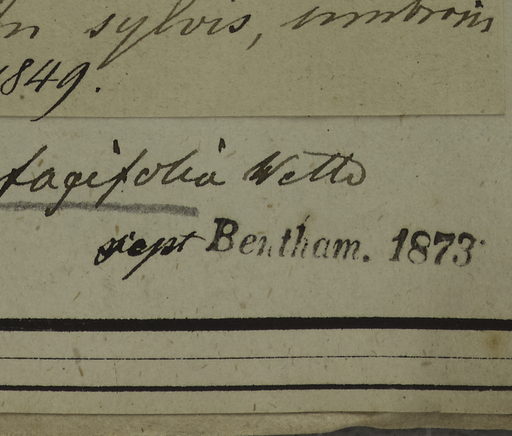 In sylvis, umbrosis
1849.
fagifolia Netto
scipst Bentham. 1873